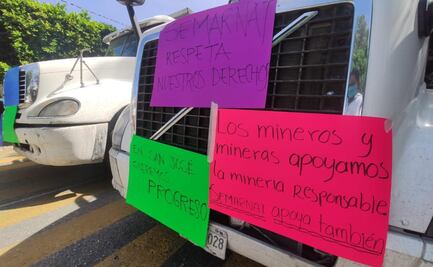 SEMARNAT
RESPETA
NUESTROS DERECHOS
EN SAN JOSÉ
QUEREMOS
PROGRESO
Los mineros y
mineras apoyamos
la minería responsable
SEMARNAT apoya también
028